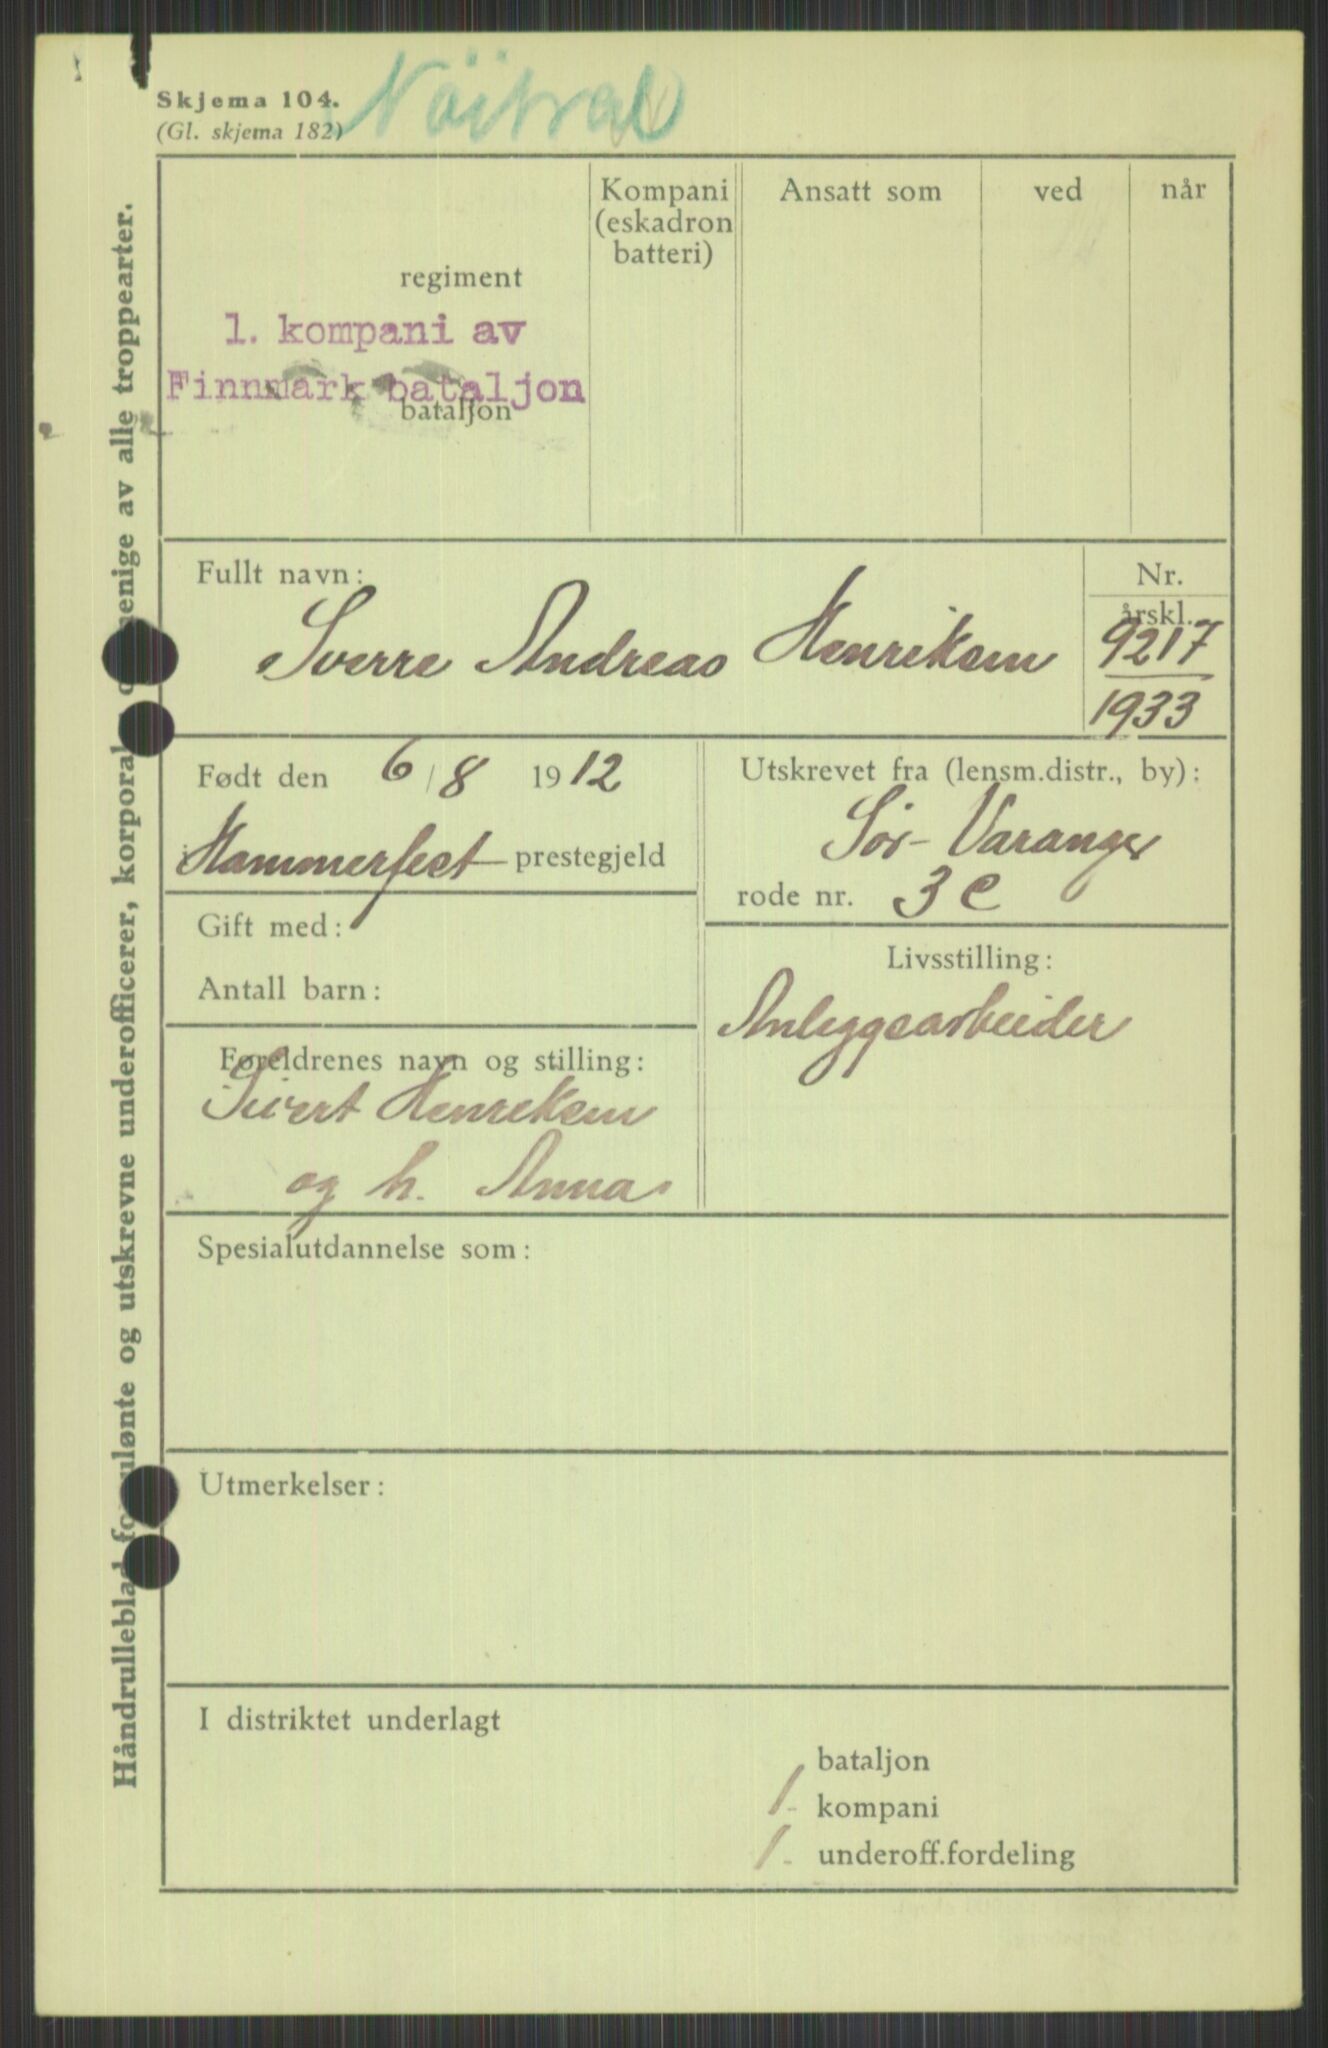 Skjema 104.
(Gl. skjema 182)
Nöitral
Håndrulleblad for ulønte og utskrevne underofficerer, korporaler og menige av alle troppearter.
regiment
1. kompani av
Finnmark bataljon
bataljon
Kompani
(eskadron
batteri)
Ansatt som
ved
når
Fullt navn:
Sverre Andreas Henriksen
Nr.
årskl.
9217
1933
Født den 6/8 1912
i Hammerfest prestegjeld
Utskrevet fra (lensm.distr., by):
Sør-Varanger
rode nr. 3 c
Gift med:
Antall barn:
Livsstilling:
Anleggsarbeider
Foreldrenes navn og stilling:
Sivert Henriksen
og h. Anna
Spesialutdannelse som:
Utmerkelser:
I distriktet underlagt
bataljon
1. kompani
1. underoff.fordeling